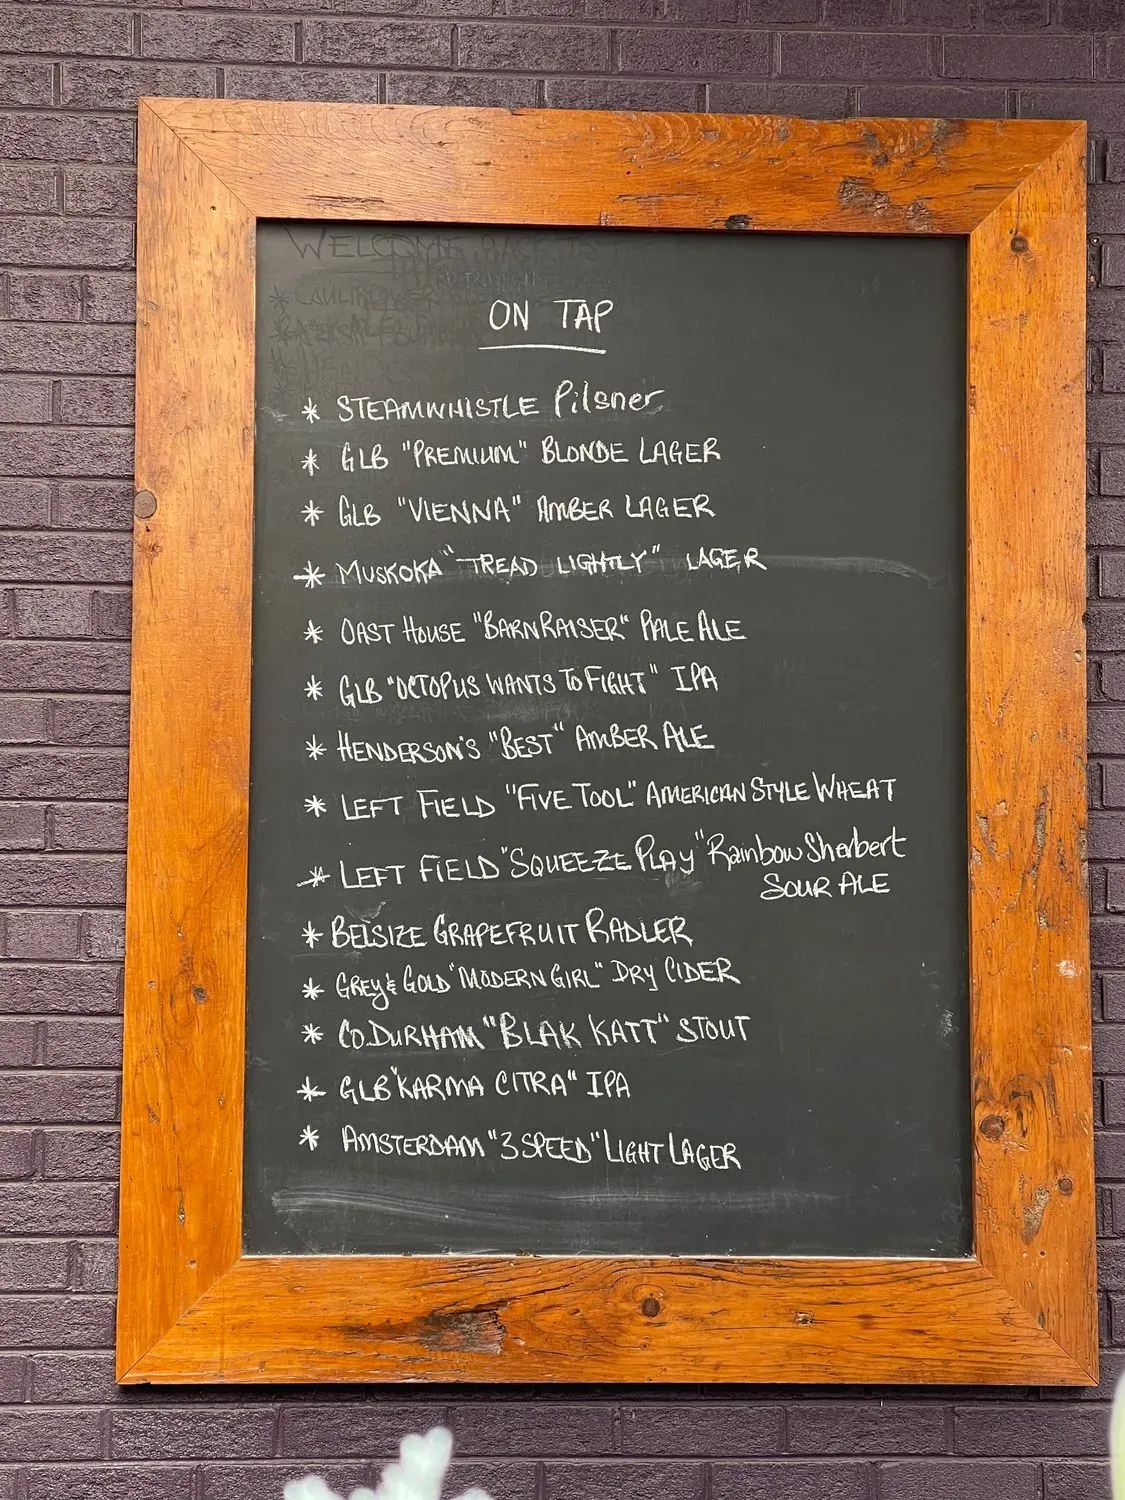 WELCOME BACK TO
ON TAP
* STEAMWHISTLE Pilsner
* GLB "PREMIUM" BLONDE LAGER
* GLB "VIENNA" AMBER LAGER
* MUSKOKA "TREAD LIGHTLY" LAGER
* OAST HOUSE "BARNRAISER" PALE ALE
* GLB "OCTOPUS WANTS TO FIGHT" IPA
* HENDERSON'S "BEST" AMBER ALE
* LEFT FIELD "FIVE TOOL" AMERICAN STYLE WHEAT
* LEFT FIELD "SQUEEZE PLAY" Rainbow Sherbert
SOUR ALE
* BELSIZE GRAPEFRUIT RADLER
* GREY & GOLD "MODERN GIRL" DRY CIDER
* CO. DURHAM "BLAK KATT" STOUT
* GLB "KARMA CITRA" IPA
* AMSTERDAM "3 SPEED" LIGHT LAGER